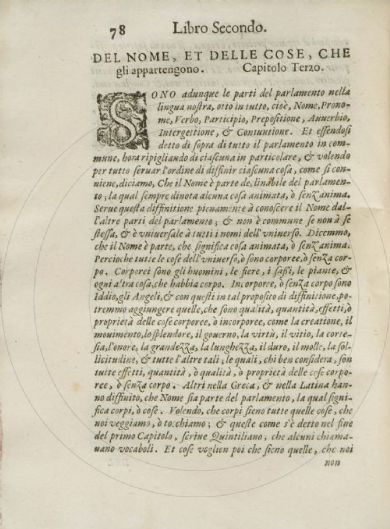 78 Libro Secondo.
DEL NOME, ET DELLE COSE, CHE
gli appartengono. Capitolo Terzo.
SONO adunque le parti del parlamento nella
lingua nostra, otto in tutto, cioè, Nome, Prono-
me, Verbo, Participio, Prepositione, Auuerbio,
Intergettione, & Contuntione. Et essendosi
detto di sopra di tutto il parlamento in com-
mune, hora ripigliando di ciascuna in particolare, & volendo
per tutto seruar l'ordine di diffinir ciascuna cosa, come si con-
uiene, diciamo, Che il Nome è parte declinabile del parlamen-
to; la qual sempre dinota alcuna cosa animata, ò senz'anima.
Serue questa diffinitione pienamente à conoscere il Nome dal-
l'altre parti del parlamento; & non è commune se non à se
stessa, & è vniuersale à tutti i nomi dell'vniuerso. Dicemmo,
che il Nome è parte, che significa cosa animata, ò senz'anima.
Percioche tutte le cose dell'vniuerso, ò sono corporee, ò senza cor-
po. Corporei sono gli huomini, le fiere, i sassi, le piante, &
ogni altra cosa, che habbia corpo. Incorporee, ò senza corpo sono
Iddio, gli Angeli, & con questi in tal proposito di diffinitione, po-
tremmo aggiungere quelle, che sono qualità, quantità, effetti, ò
proprietà delle cose corporee, ò incorporee, come la creatione, il
mouimento, lo splendore, il gouerno, la virtù, il vitio, la corte-
sia, l'onore, la grandezza, la lunghezza, il duro, il molle, la sol-
licitudine, & tutte l'altre tali, le quali, chi ben considera, son
tutte effetti, quantità, ò qualità, ò proprietà delle cose corpo-
ree, ò senza corpo. Altri nella Greca, & nella Latina han-
no diffinito, che Nome sia parte del parlamento, la qual signi-
fica corpi, ò cose. Volendo, che corpi sieno tutte quelle cose, che
noi veggiamo, ò tocchiamo; & queste come s'è detto nel fine
del primo Capitolo, scriue Quintiliano, che alcuni chiama-
uano vocaboli. Et cose voglion poi che sieno quelle, che noi
non